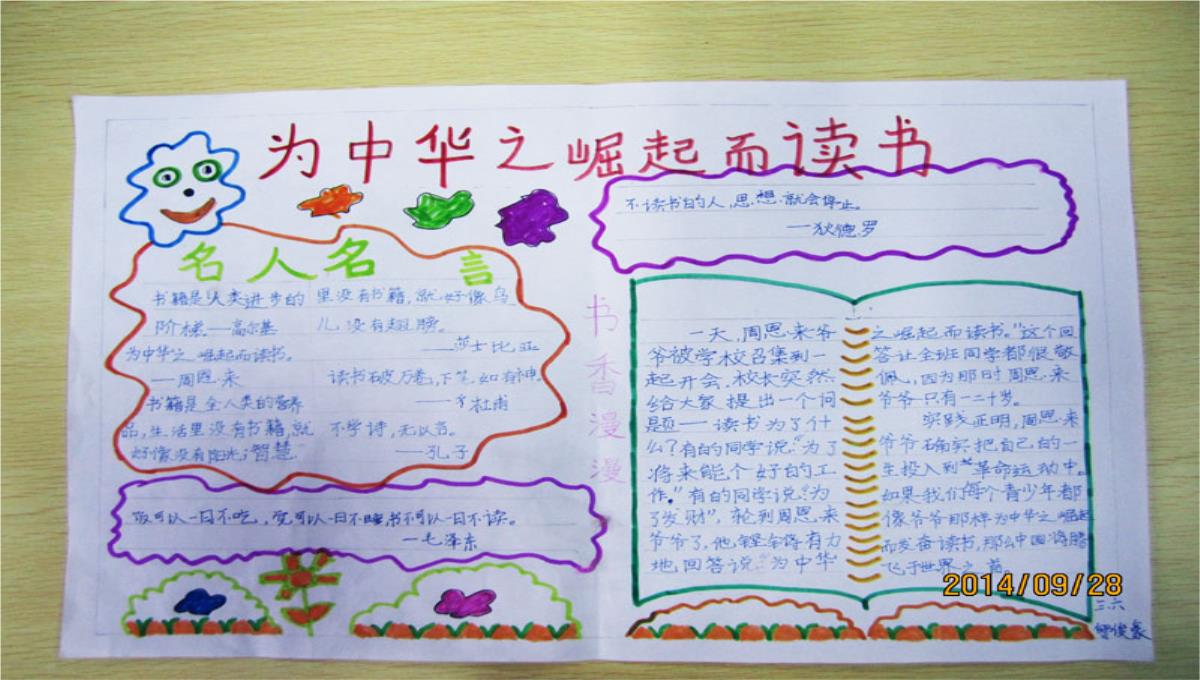 为中华之崛起而读书
名人名言
书籍是人类进步的
阶梯。—高尔基
为中华之崛起而读书。
—周恩来
书籍是全人类的营养
品,生活里没有书籍,就
好像没有阳光;智慧
里没有书籍,就好像鸟
儿没有翅膀。
—莎士比亚
读书破万卷,下笔如有神。
杜甫
不学诗,无以言。
—孔子
饭可以一日不吃,觉可以一日不睡,书不可以一日不读。
—毛泽东
书香漫漫
不读书的人,思想就会停止。
—狄德罗
一天,周恩来爷
爷被学校召集到一
起开会,校长突然
给大家提出一个问
题—读书为了什
么?有的同学说:“为了
将来能个好的工
作。”有的同学说:“为
了发财”,轮到周恩来
爷爷了,他铿锵有力
地回答说:“为中华
之崛起而读书。”这个回
答让全班同学都很敬
佩,因为那时周恩来
爷爷只有一二十岁。
实践正明,周恩来
爷爷确实把自己的一
生投入到“革命运动中。
如果我们每个青少年都
像爷爷那样为中华之崛起
而发奋读书,那么中国将腾
飞于世界之首。
2014/09/28
二.六
俊豪